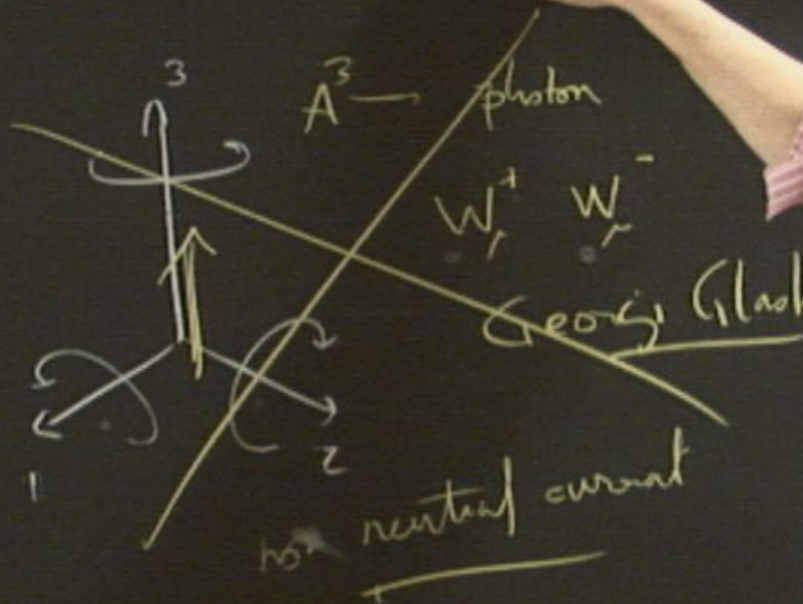 3
A³ — photon
W⁺μ W⁻μ
Georgi Glash
1
2
no neutral current